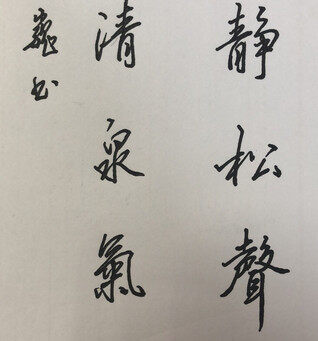 静松聲
清泉氣